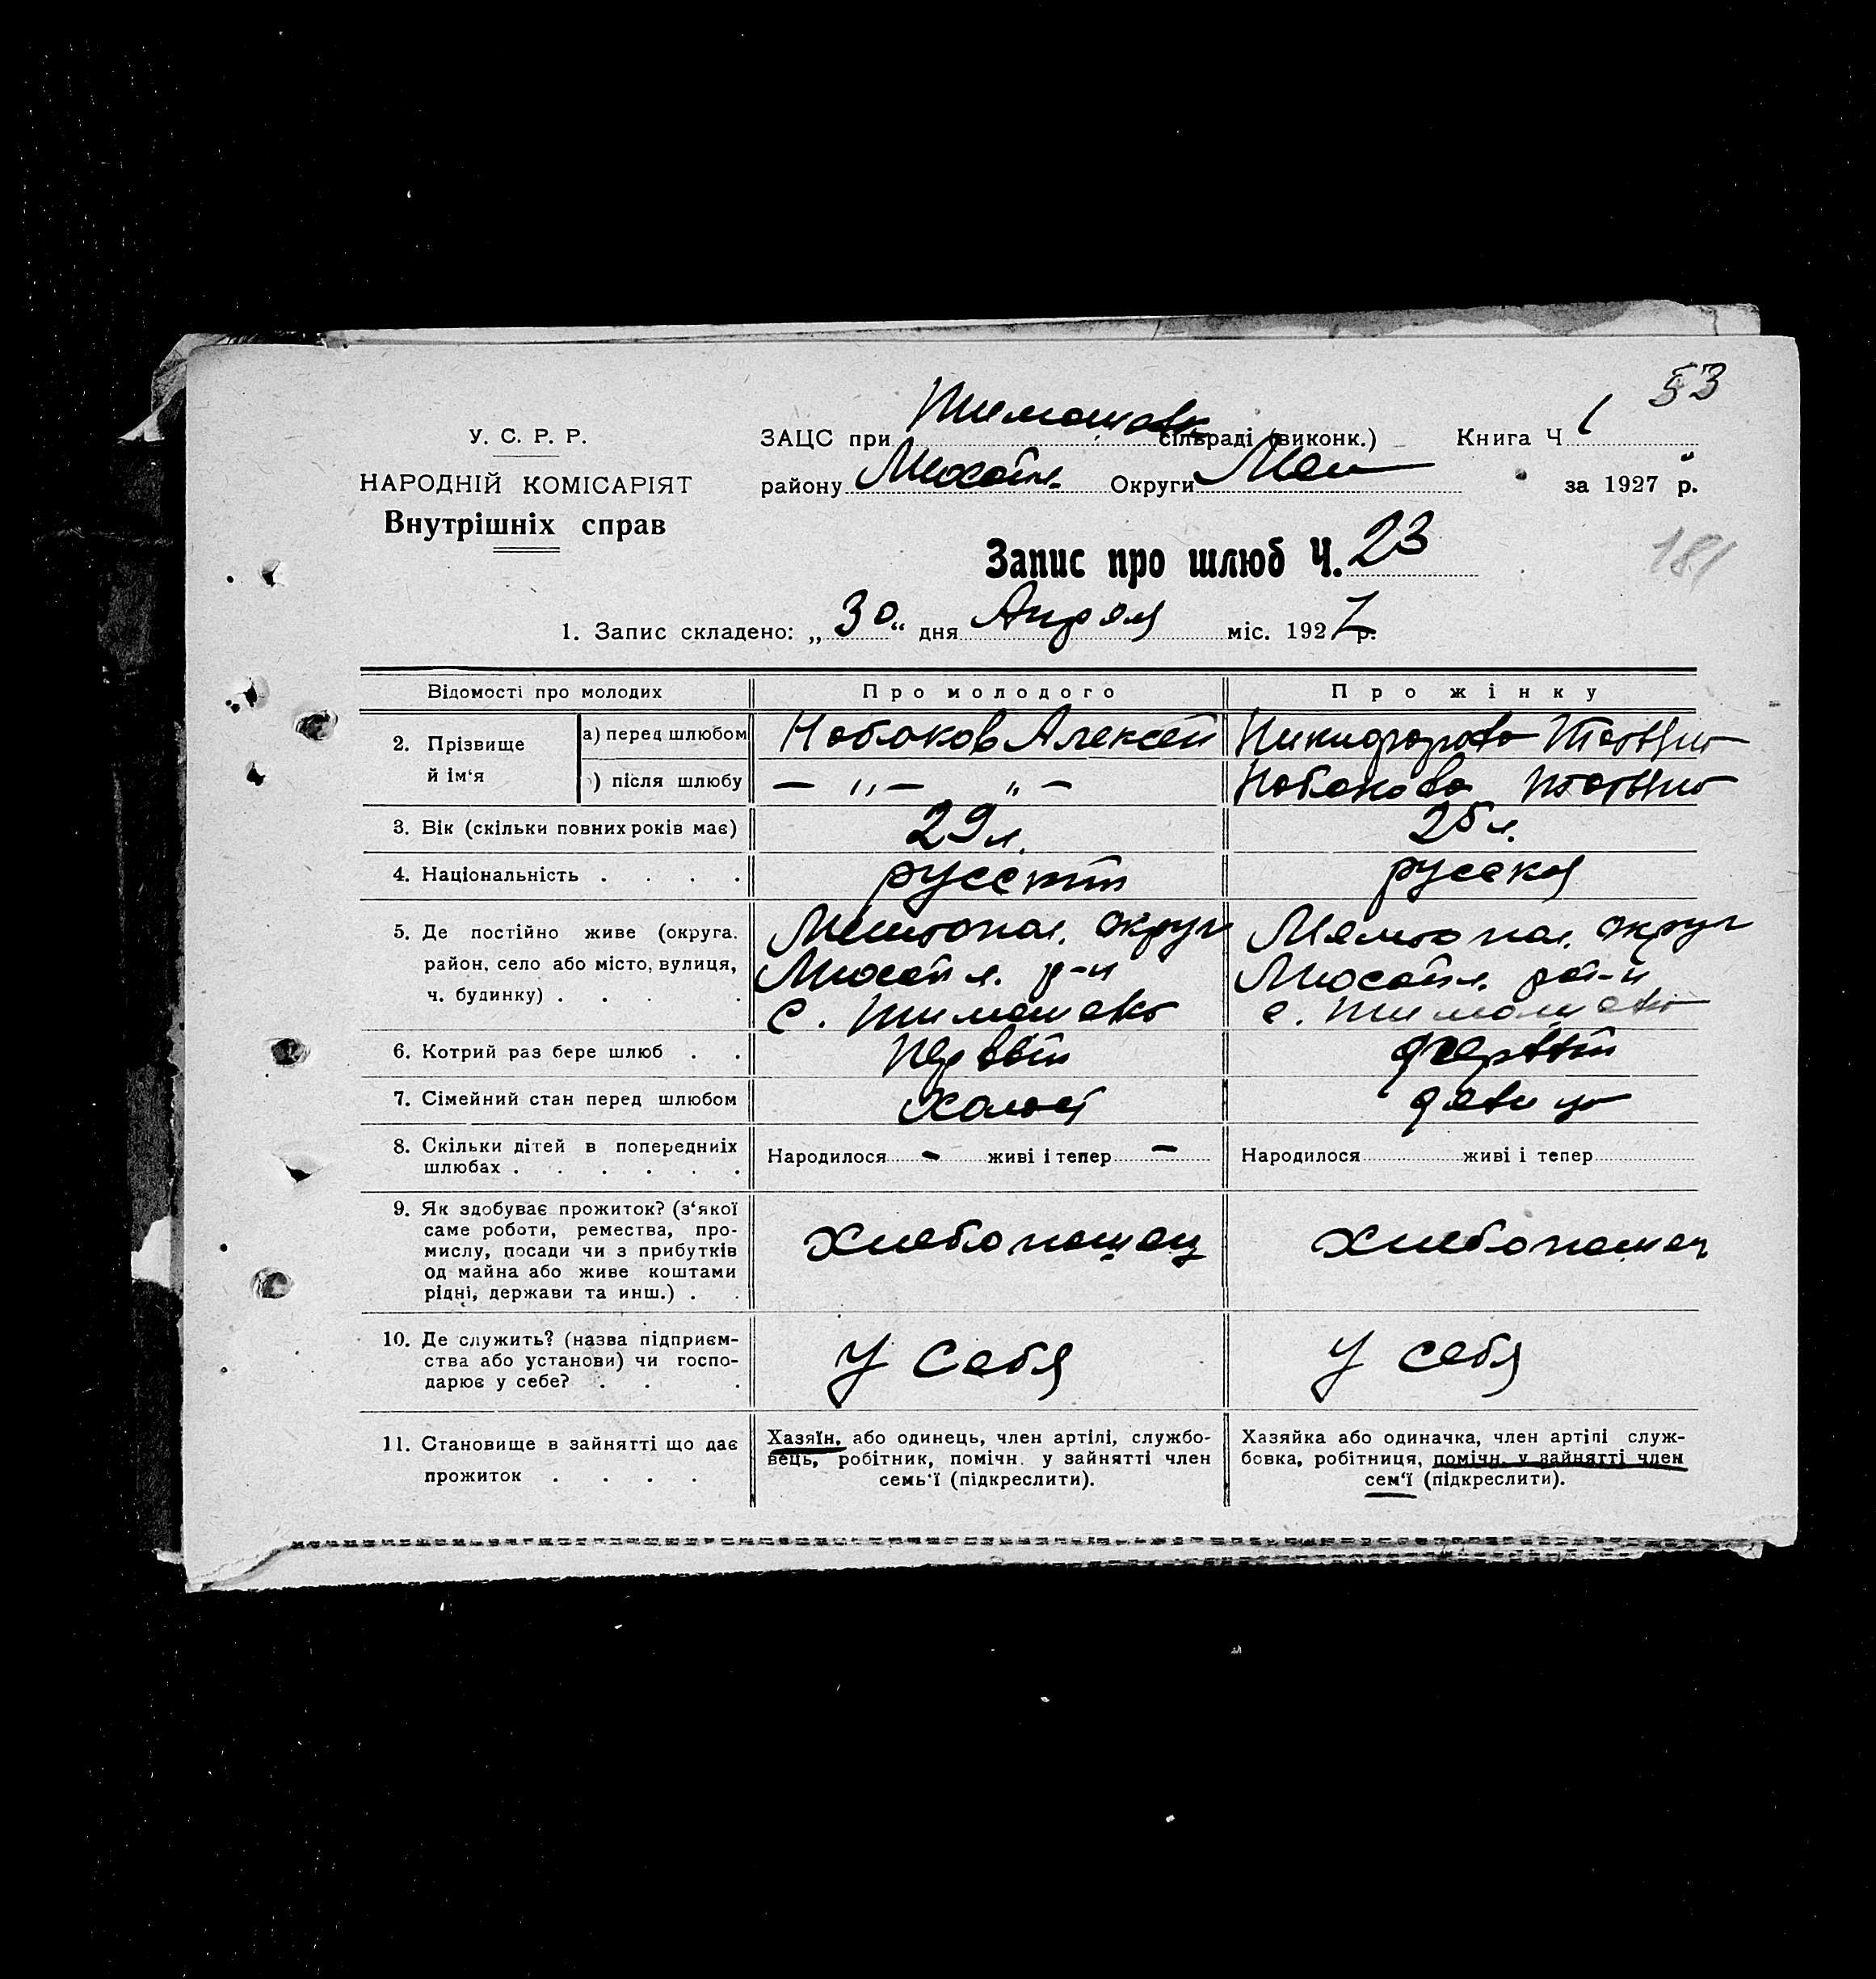 53
У. С. Р. Р.
НАРОДНІЙ КОМІСАРІЯТ
Внутрішніх справ
ЗАЦС при Тимошовк сільраді (виконк.) Книга Ч 1
району Михайл. Округи Мел за 1927 р.
181
Запис про шлюб Ч. 23
1. Запис складено: „30“ дня Апреля міс. 1927 р.
Відомості про молодих Про молодого Про жінку
2. Прізвище й ім'я
а) перед шлюбом Набоков Алексей Никифорова Татьяна
) після шлюбу — „ — „ — Набокова Татьяна
3. Вік (скільки повних років має) 29 л. 25 л.
4. Національність . . . . русский русская
5. Де постійно живе (округа, район, село або місто, вулиця, ч. будинку) . . . .
Мелитопол. округ
Михайл. р-н
с. Тимошовка
Мелитопол. округ
Михайл. рай-н
с. Тимошовка
6. Котрий раз бере шлюб . . первый первый
7. Сімейний стан перед шлюбом холост девица
8. Скільки дітей в попередніх шлюбах . . . . . . Народилося - живі і тепер - Народилося живі і тепер
9. Як здобуває прожиток? (з'якої
саме роботи, ремества, про-
мислу, посади чи з прибутків
од майна або живе коштами
рідні, держави та инш.) . .
хлебопашец хлебопашец
10. Де служить? (назва підприєм-
ства або установи) чи госпо-
дарює у себе? . . .
у себя у себя
11. Становище в зайнятті що дає
прожиток . . . .
Хазяїн, або одинець, член артілі, службо-
вець, робітник, помічн. у зайнятті член
семь'ї (підкреслити).
Хазяйка або одиначка, член артілі служ-
бовка, робітниця, помічн. у зайнятті член
сем'ї (підкреслити).